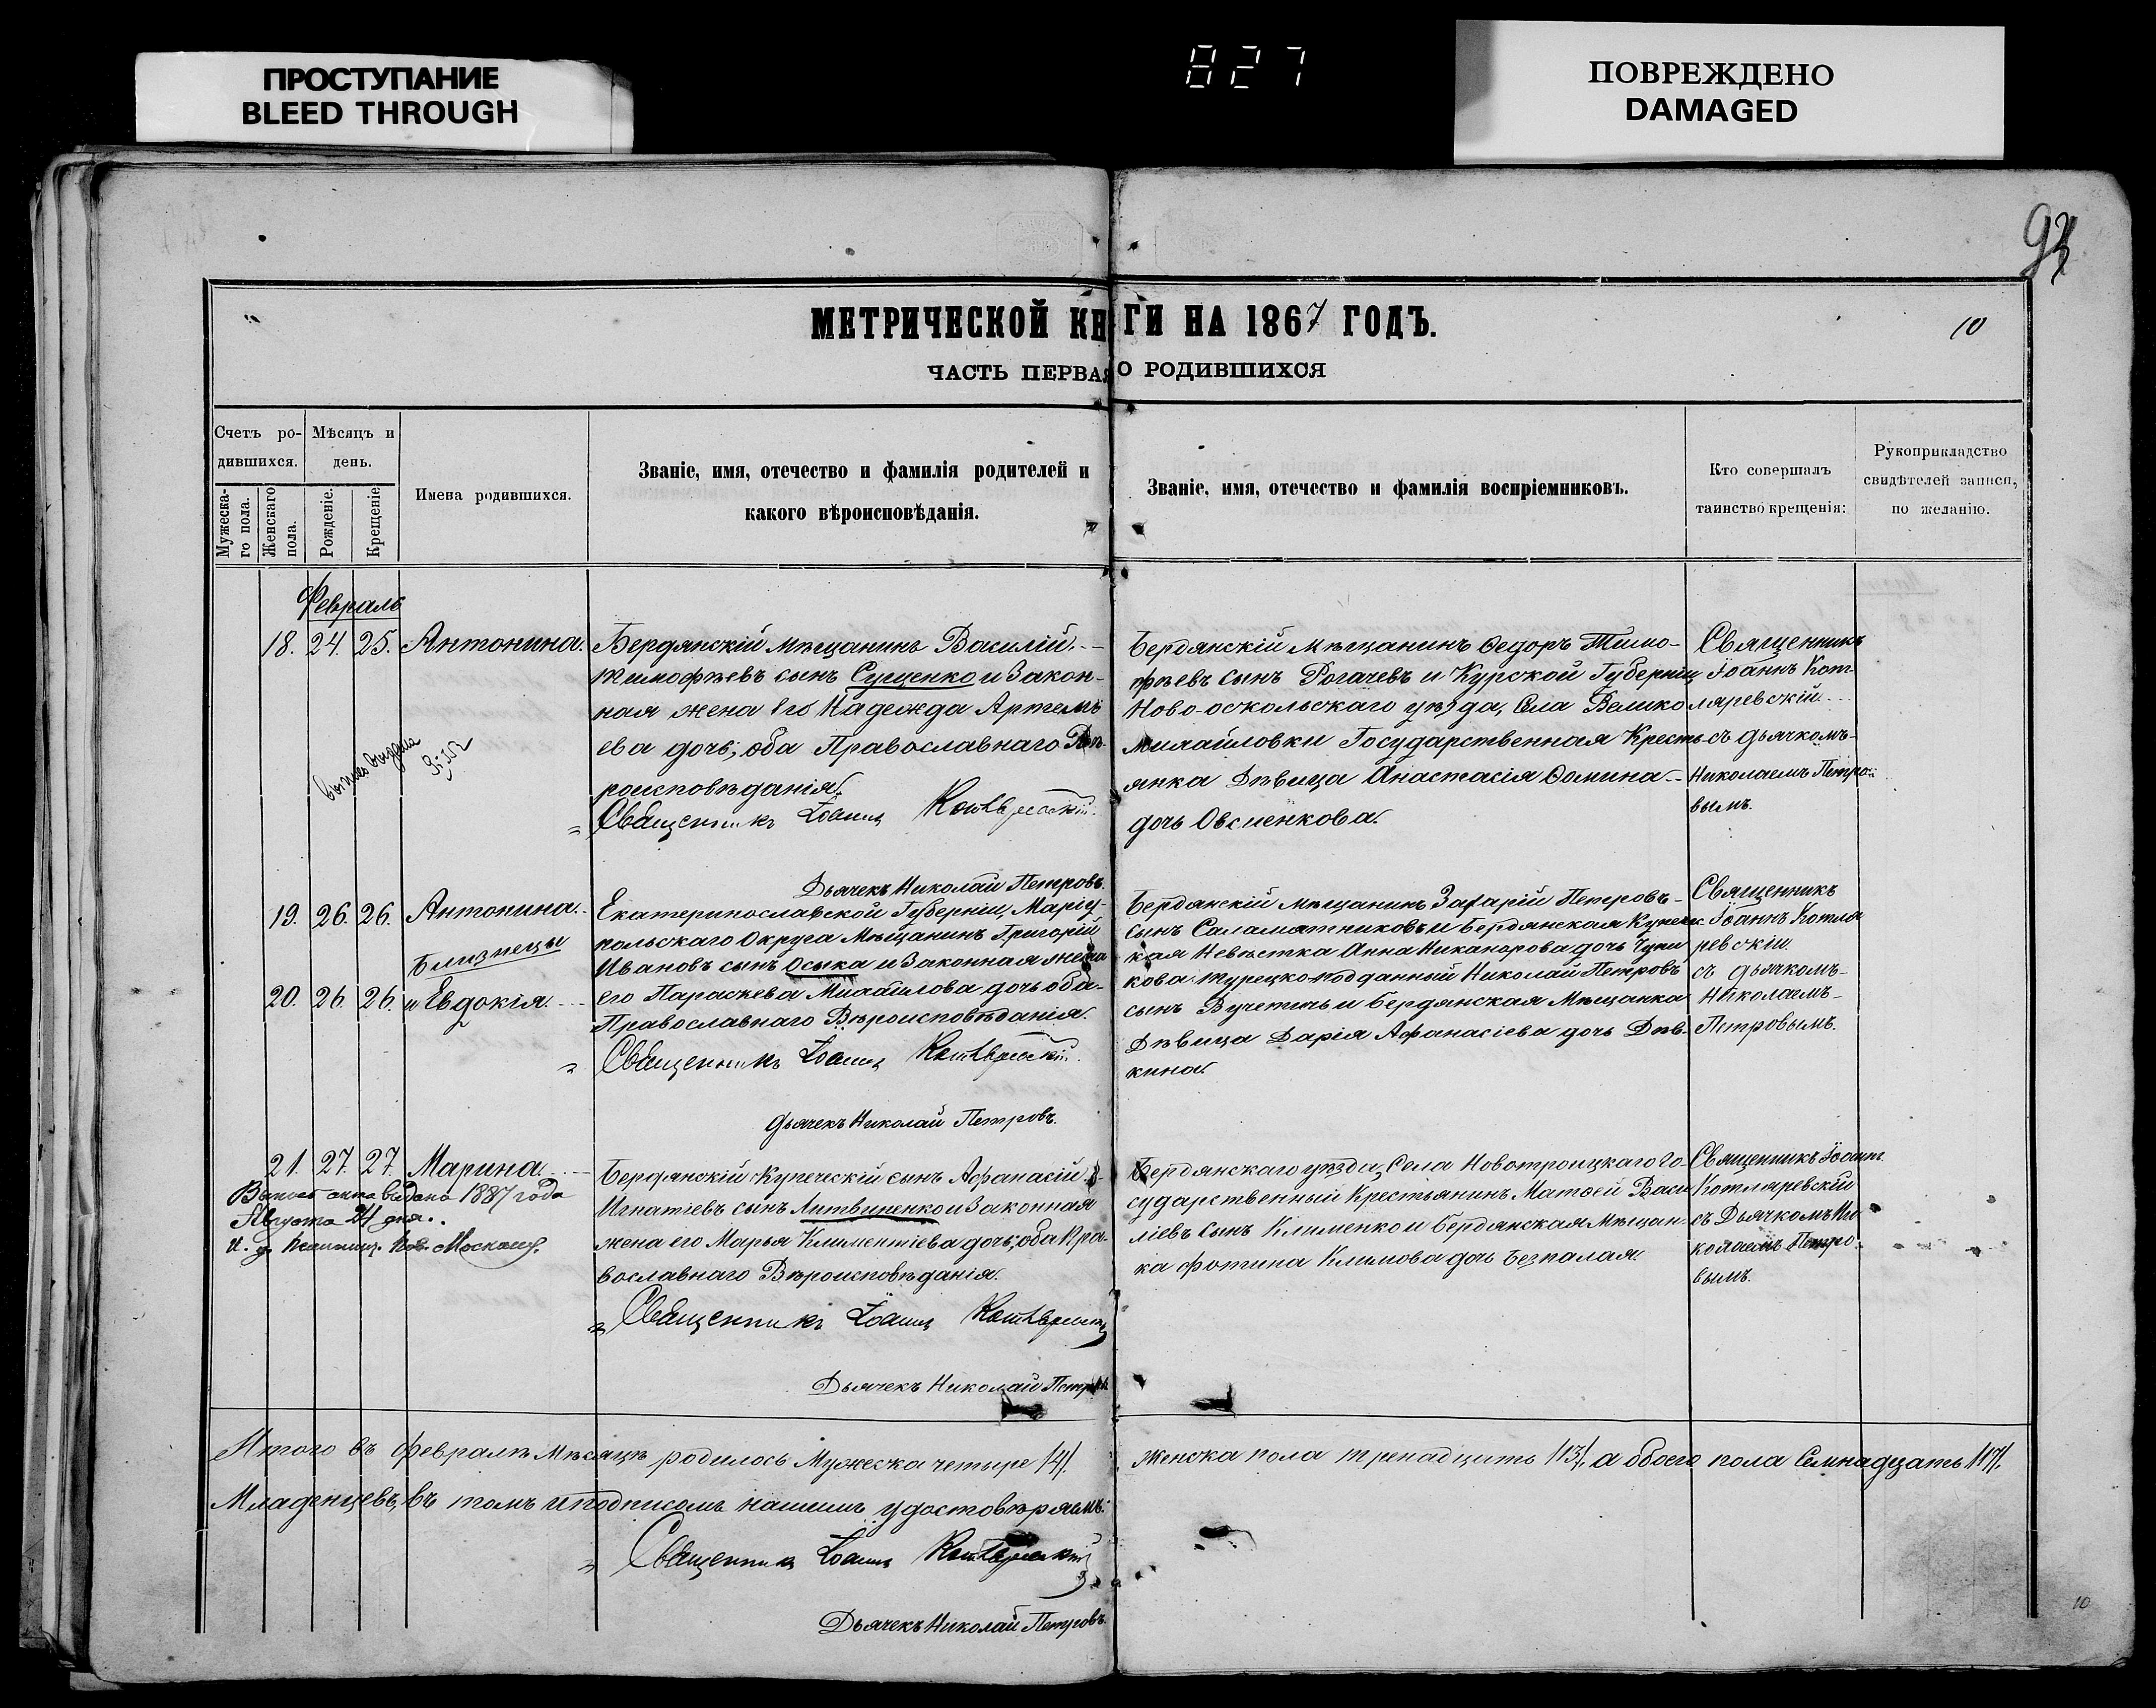 ПРОСТУПАНИЕ
BLEED THROUGH
827
ПОВРЕЖДЕНО
DAMAGED
93
МЕТРИЧЕСКОЙ КН ГИ НА 1867 ГОДЪ.
10
ЧАСТЬ ПЕРВАЯ О РОДИВШИХСЯ
Счетъ ро-
дившихся.
Мѣсяцъ и
день.
Мужеска-
го пола.
Женскаго
пола.
Рожденіе.
Крещеніе
Имена родившихся.
Званіе, имя, отечество и фамилія родителей и
какого вѣроисповѣданія.
Званіе, имя, отечество и фамилія воспріемниковъ.
Кто совершалъ
таинство крещенія:
Рукоприкладство
свидѣтелей записи,
по желанію.
Февраль
18. 24. 25. Антонина.
Бердянскій мѣщанинъ Василій
Тимофѣевъ сынъ Сущенко и Закон-
ная жена его Надежда Артемь
ева дочь; оба Православнаго Вѣ-
роисповѣданія.
Священникъ Іоаннъ Котляревскій.
Дьячекъ Николай Петровъ.
Бердянскій мѣщанинъ Ѳедоръ Тимо-
фѣевъ сынъ Рогачевъ и Курской Губерніи
Ново-оскольскаго уѣзда, Села Велико
михайловки Государственная Кресть-
янка Дѣвица Анастасія Ѳомина
дочь Овсиенкова.
Священникъ
Іоаннъ Кот-
ляревскій
съ дьячкомъ
Николаемъ Петро-
вымъ.
19. 26. 26. Антонина.
Близнецы
20. 26. 26. и Евдокія.
Екатеринославской Губерніи, Маріу-
польскаго Округа Мѣщанинъ Григорій
Ивановъ сынъ Осыка и Законная жена
его Параскева Михайлова дочь оба
Православнаго Вѣроисповѣданія.
Священникъ Іоаннъ Котляревскій.
Дьячекъ Николай Петровъ.
Бердянскій мѣщанинъ Захарій Петровъ
сынъ Саламатниковъ и Бердянская Купечес-
кая Невѣстка Анна Никанорова дочь Чупи
кова; Турецко-подданный Николай Петровъ
сынъ Вучетичь и Бердянская Мѣщанка
Дѣвица Дарія Афанасіева дочь Дѣв-
кина.
Священникъ
Іоаннъ Котля
ревскій
съ дьячкомъ
Николаемъ
Петровымъ.
21. 27. 27. Марина.
видано 1887 года
Августа 24 дня.
Бердянскій Купеческій сынъ Афанасій
Игнатіевъ сынъ Литвиненко и Законная
жена его Марья Климентіева дочь; оба Пра-
вославнаго Вѣроисповѣданія.
Священникъ Іоаннъ Котляревскій
Дьячекъ Николай Петровъ
Бердянскаго уѣзда, Села Новотроицкаго Го-
сударственный Крестьянинъ Матѳей Васи
ліевъ сынъ Клименко и Бердянская Мѣщан-
ка Фотина Климова дочь Безпалая.
Священникъ Іоаннъ
Котляревскій
съ Дьячкомъ Ни
колаемъ Петро-
вымъ.
Итого въ Февралѣ Мѣсяцѣ родилось Мужеска четыре /4/. Женска пола тренадцать /13/, а обоего пола Семнадцать /17/.
Младенцевъ, въ томъ и подписомъ нашимъ удостовѣряемъ:
Священникъ Іоаннъ Котляревскій
Дьячекъ Николай Петровъ.
10